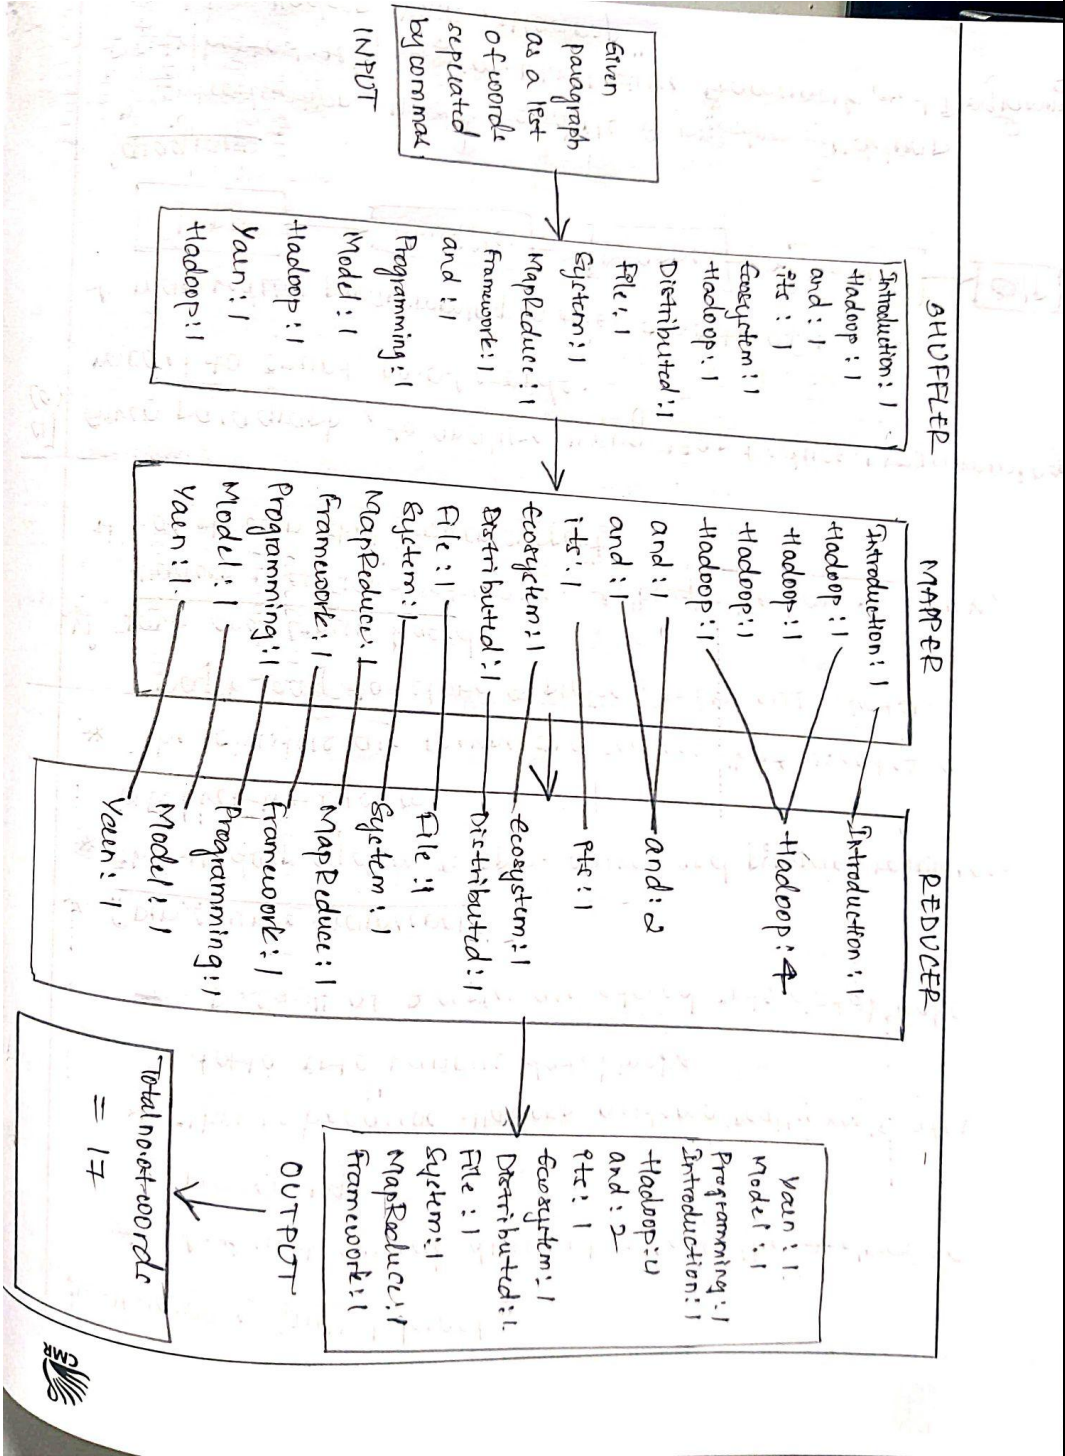 Given
paragraph
as a list
of words
seperated
by commas.
INPUT
SHUFFLER
Introduction : 1
Hadoop : 1
and : 1
its : 1
Ecosystem : 1
Hadoop : 1
Distributed : 1
File : 1
System : 1
MapReduce : 1
Framework : 1
and : 1
Programming : 1
Model : 1
Hadoop : 1
Yarn : 1
Hadoop : 1
MAPPER
Introduction : 1
Hadoop : 1
Hadoop : 1
Hadoop : 1
Hadoop : 1
and : 1
and : 1
its : 1
Ecosystem : 1
Distributed : 1
File : 1
System : 1
MapReduce : 1
Framework : 1
Programming : 1
Model : 1
Yarn : 1.
REDUCER
Introduction : 1
Hadoop : 4
and : 2
its : 1
Ecosystem : 1
Distributed : 1
File : 1
System : 1
MapReduce : 1
Framework : 1
Programming : 1
Model : 1
Yarn : 1
Yarn : 1.
Model : 1
Programming : 1
Introduction : 1
Hadoop : 4
and : 2
its : 1
Ecosystem : 1
Distributed : 1.
File : 1
System : 1.
MapReduce : 1
Framework : 1
OUTPUT
Total no. of words
= 17
CMR